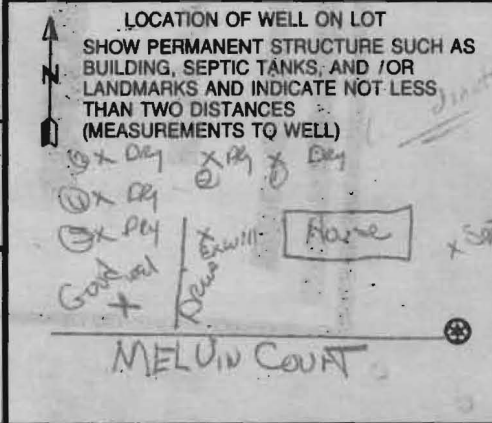 LOCATION OF WELL ON LOT
SHOW PERMANENT STRUCTURE SUCH AS
BUILDING, SEPTIC TANKS, AND /OR
LANDMARKS AND INDICATE NOT LESS
THAN TWO DISTANCES
(MEASUREMENTS TO WELL)
N
x Dry x Dry x Dry
② ①
④ x Dry
⑤ x Dry
House
Good well
x
x
x
MELVIN COURT